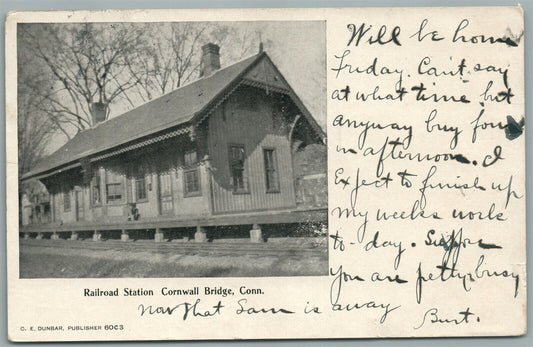 Will be home
Friday. Can't say
at what time but
anyway buy four
in afternoon. I
Expect to finish up
my weeks work
to-day. Suppose
You are petty busy
now that Sam is away
Burt.
Railroad Station Cornwall Bridge, Conn.
C. E. DUNBAR, PUBLISHER 60C3